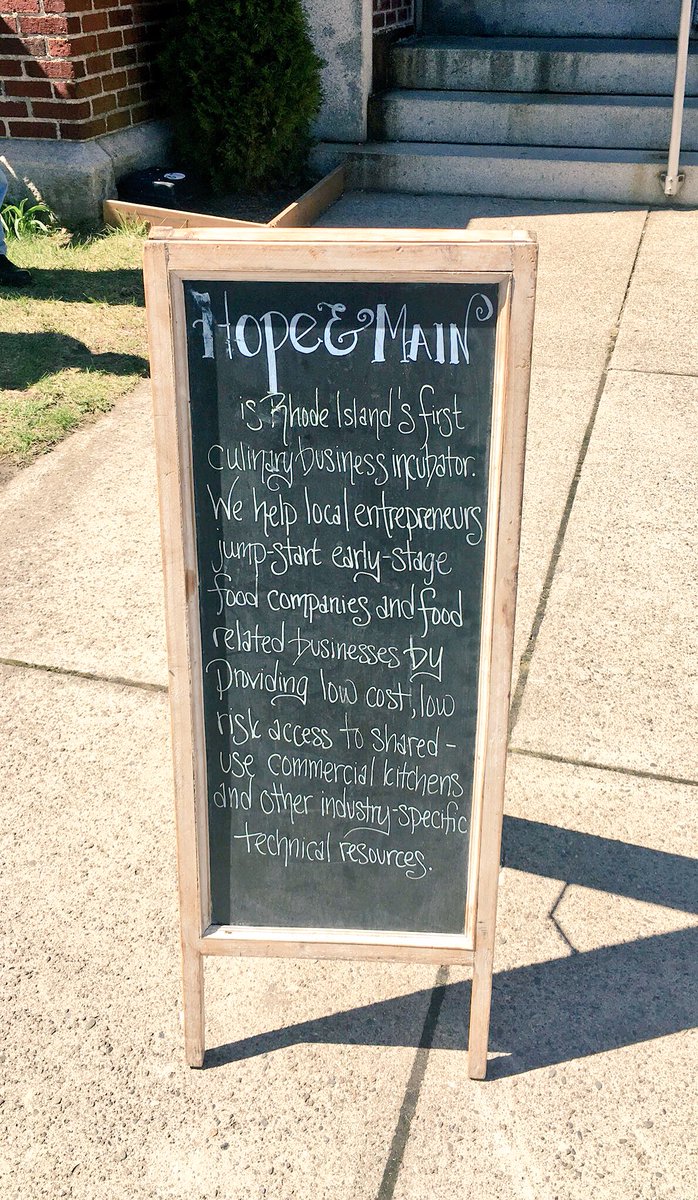 Hope & Main
is Rhode Island's first
culinary business incubator.
We help local entrepreneurs
jump-start early-stage
food companies and food
related businesses by
Providing low cost, low
risk access to shared -
use commercial kitchens
and other industry-specific
technical resources.